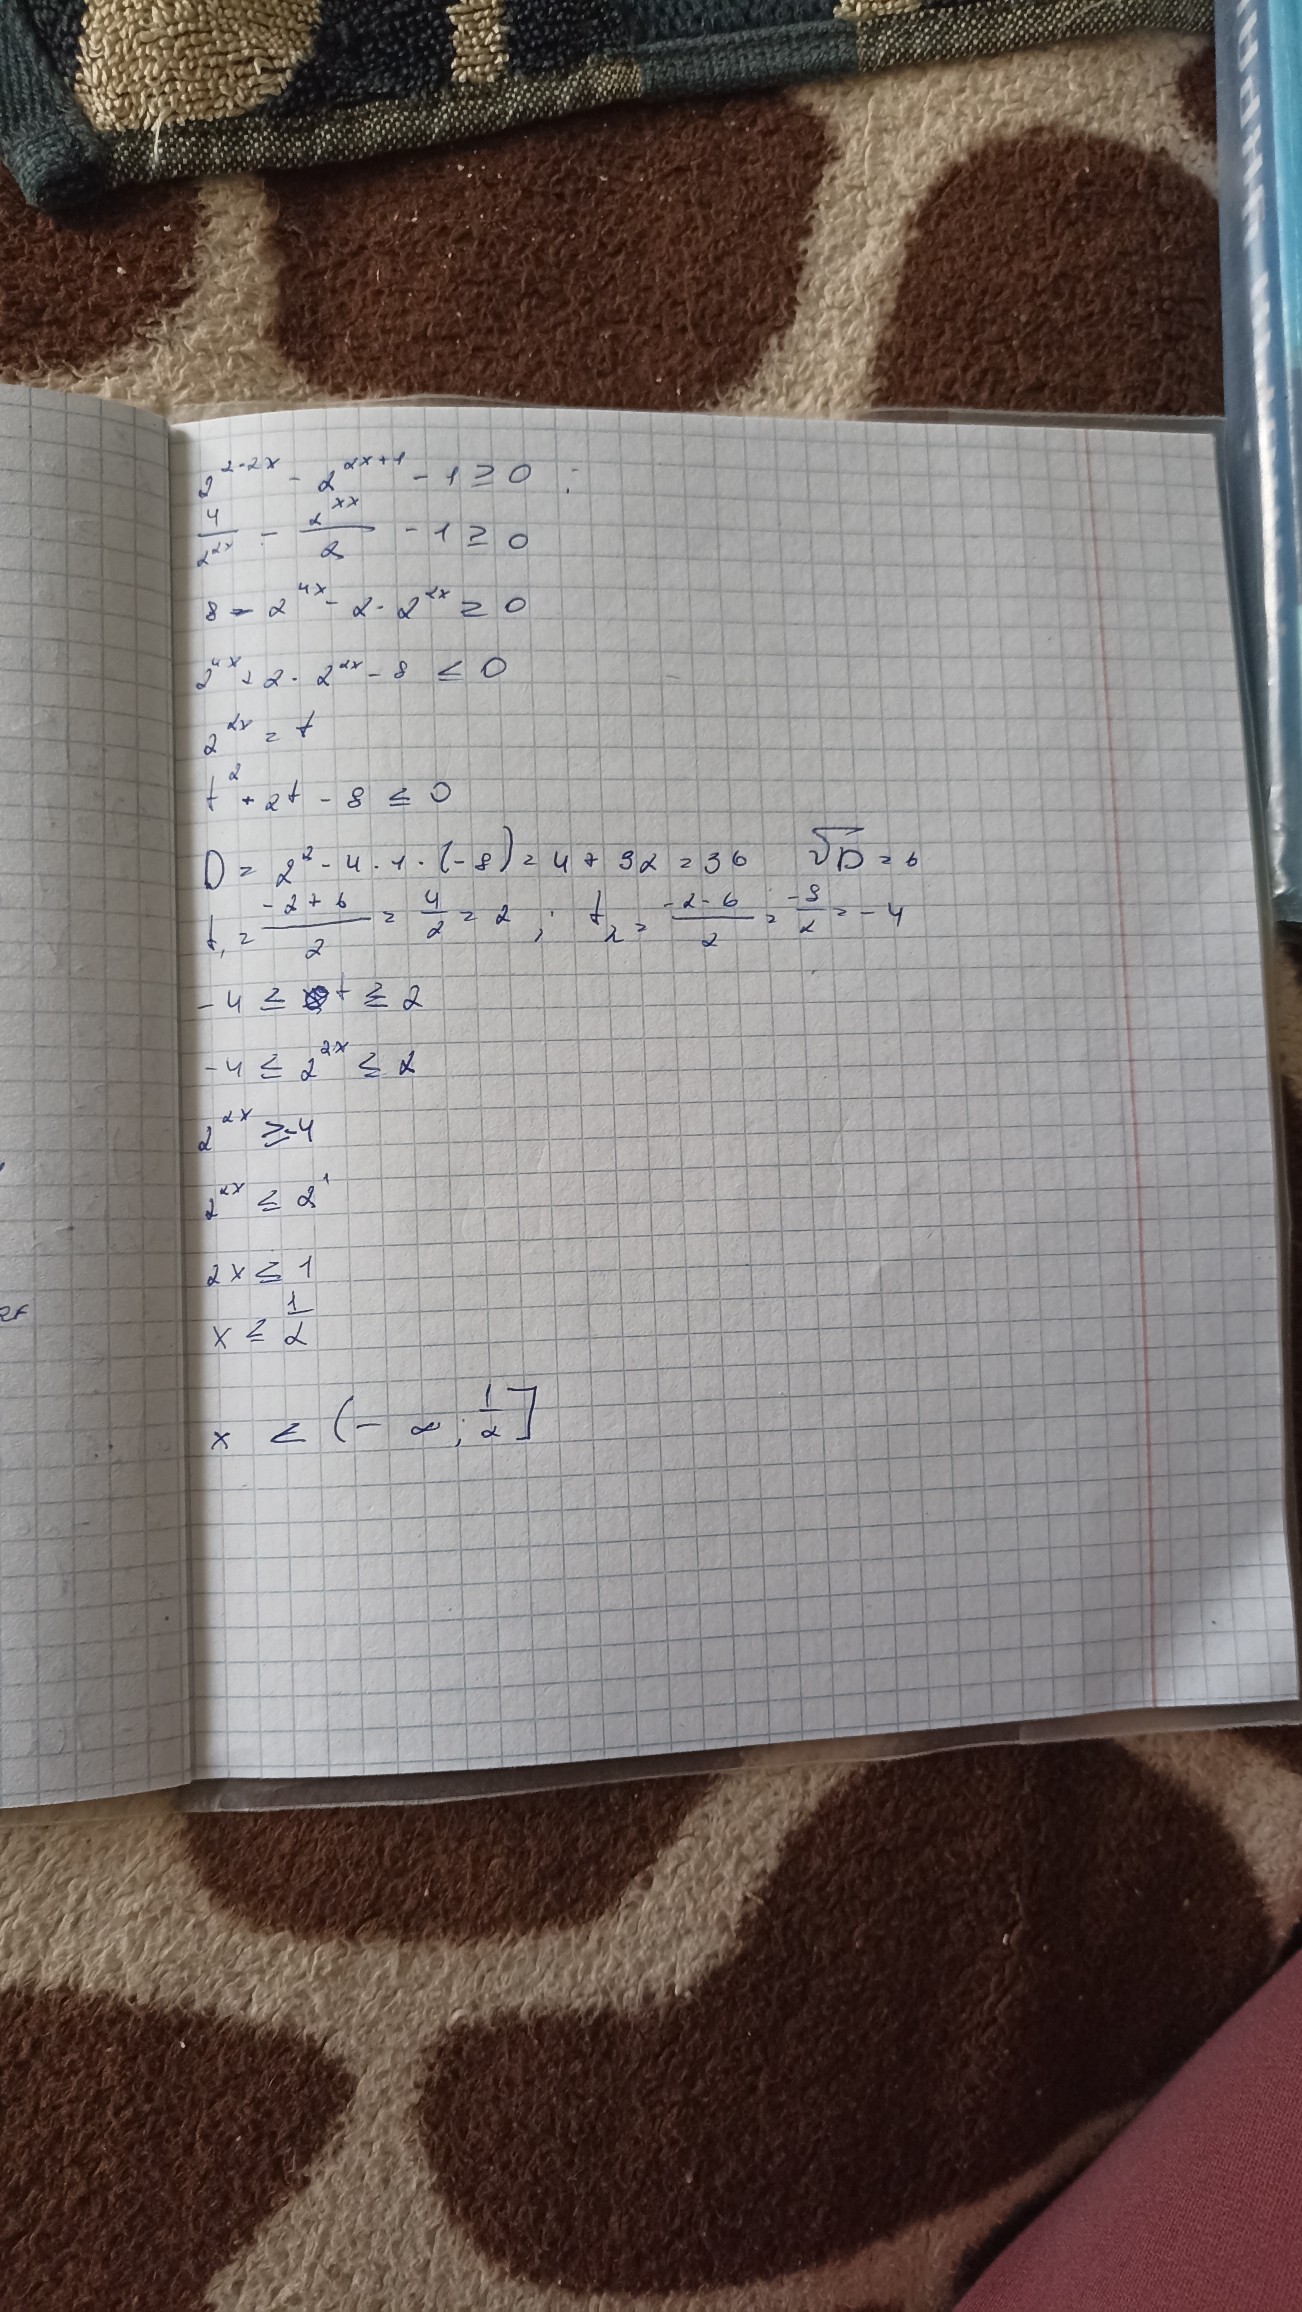 2^{2-2x} - 2^{2x+1} - 1 ≥ 0 ;
\frac{4}{2^{2x}} - \frac{2^{xx}}{2} - 1 ≥ 0
8 - 2^{4x} - 2 · 2^{2x} ≥ 0
2^{4x} + 2 · 2^{2x} - 8 ≤ 0
2^{2x} = t
t^2 + 2t - 8 ≤ 0
D = 2^2 - 4 · 1 · (-8) = 4 + 32 = 36 √D = 6
t_1 = \frac{-2+6}{2} = \frac{4}{2} = 2 ; t_2 = \frac{-2-6}{2} = \frac{-8}{2} = -4
-4 ≤ t ≤ 2
-4 ≤ 2^{2x} ≤ 2
2^{2x} ≥ -4
2^{2x} ≤ 2^1
2x ≤ 1
x ≤ \frac{1}{2}
x ∈ (-∞; \frac{1}{2}]